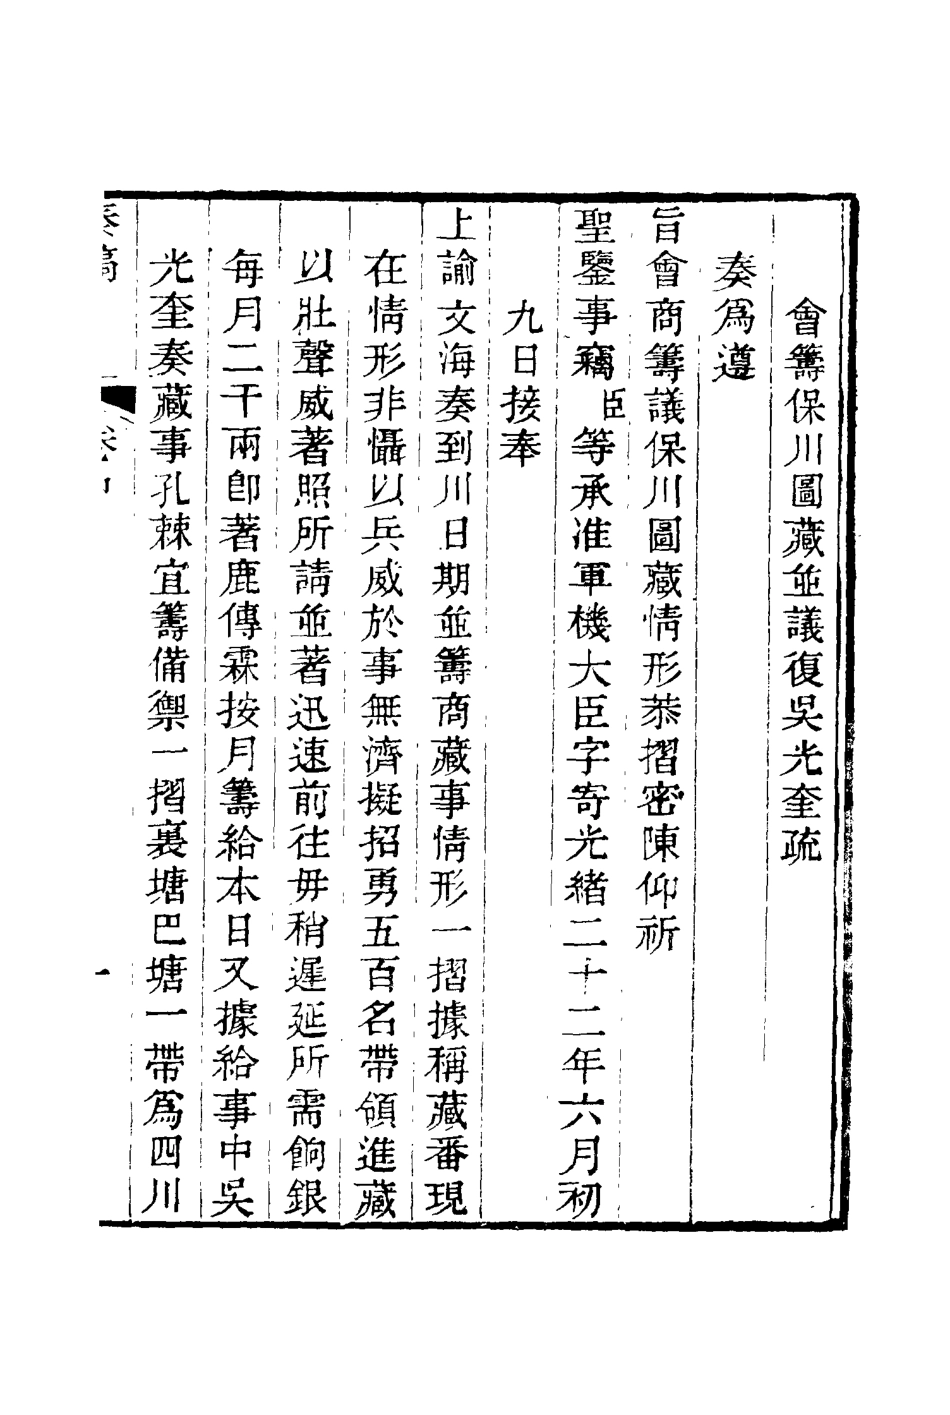 會籌保川圖藏並議復吳光奎疏
奏爲遵
旨會商籌議保川圖藏情形恭摺密陳仰祈
聖鑒事竊臣等承准軍機大臣字寄光緒二十二年六月初
九日接奉
上諭文海奏到川日期並籌商藏事情形一摺據稱藏番現
在情形非懾以兵威於事無濟擬招勇五百名帶領進藏
以壯聲威著照所請並著迅速前往毋稍遲延所需餉銀
每月二千兩卽著鹿傳霖按月籌給本日又據給事中吳
光奎奏藏事孔棘宜籌備禦一摺裏塘巴塘一帶爲四川
奏稿
一